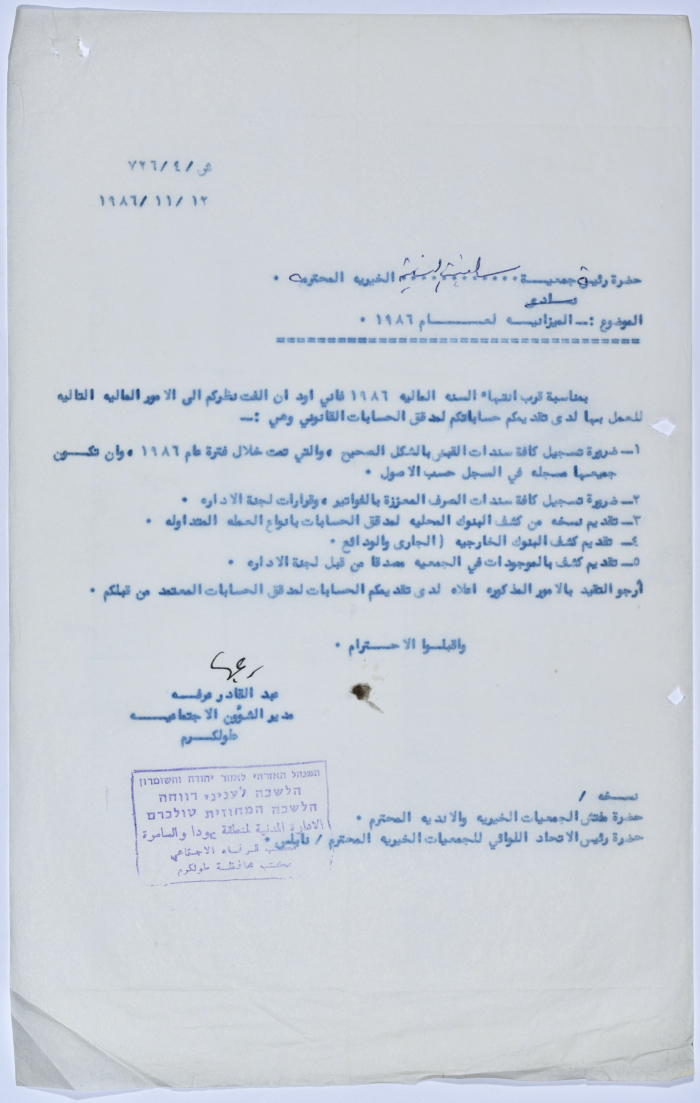 ص / ٤ / ٧٢٦
١٢ / ١١ / ١٩٨٦
حضرة رئيسة جمعيـــة الخيريه المحترمه .
الموضوع :ــ الميزانيــه لعـــــــام ١٩٨٦ .
بمناسبة قرب انتهاء السنه الماليه ١٩٨٦ فاني اود ان الفت نظركم الى الامور الماليه التاليه
للعمل بها لدى تقديمكم حساباتكم لمدقق الحسابات القانوني وهي :ــ
١ــ ضرورة تسجيل كافة سندات القبض بالشكل الصحيح ، والتي تمت خلال فترة عام ١٩٨٦ ، وان تكـــون
جميعها مسجله في السجل حسب الاصول .
٢ــ ضرورة تسجيل كافة سندات الصرف المعززة بالفواتير ، وقرارات لجنة الاداره .
٣ــ تقديم نسخه من كشف البنوك المحليه لمدقق الحسابات بانواع العمله المتداوله .
٤ــ تقديم كشف البنوك الخارجيه ( الجارى والودائع .
٥ــ تقديم كشف بالموجودات في الجمعيه مصدقا من قبل لجنة الاداره .
أرجو التقيد بالامور المذكوره اعلاه لدى تقديمكم الحسابات لمدقق الحسابات المعتمد من قبلكم .
واقبلــوا الاحـــترام .
عبد القادر عرفـــه
مدير الشؤون الاجتماعيـــه
طولكـــرم
המנהל האזרחי לאזור יהודה והשומרון
הלשכה לעניני רווחה
הלשכה המחוזית טולכרם
الادارة المدنية لمنطقة يهودا والسامرة
الاجتماعي
مكتب محافظة طولكرم
نسخـه /
حضرة مفتش الجمعيات الخيريه والانديه المحترم .
حضرة رئيس الاتحاد اللوائي للجمعيات الخيريه المحترم / نابلس .